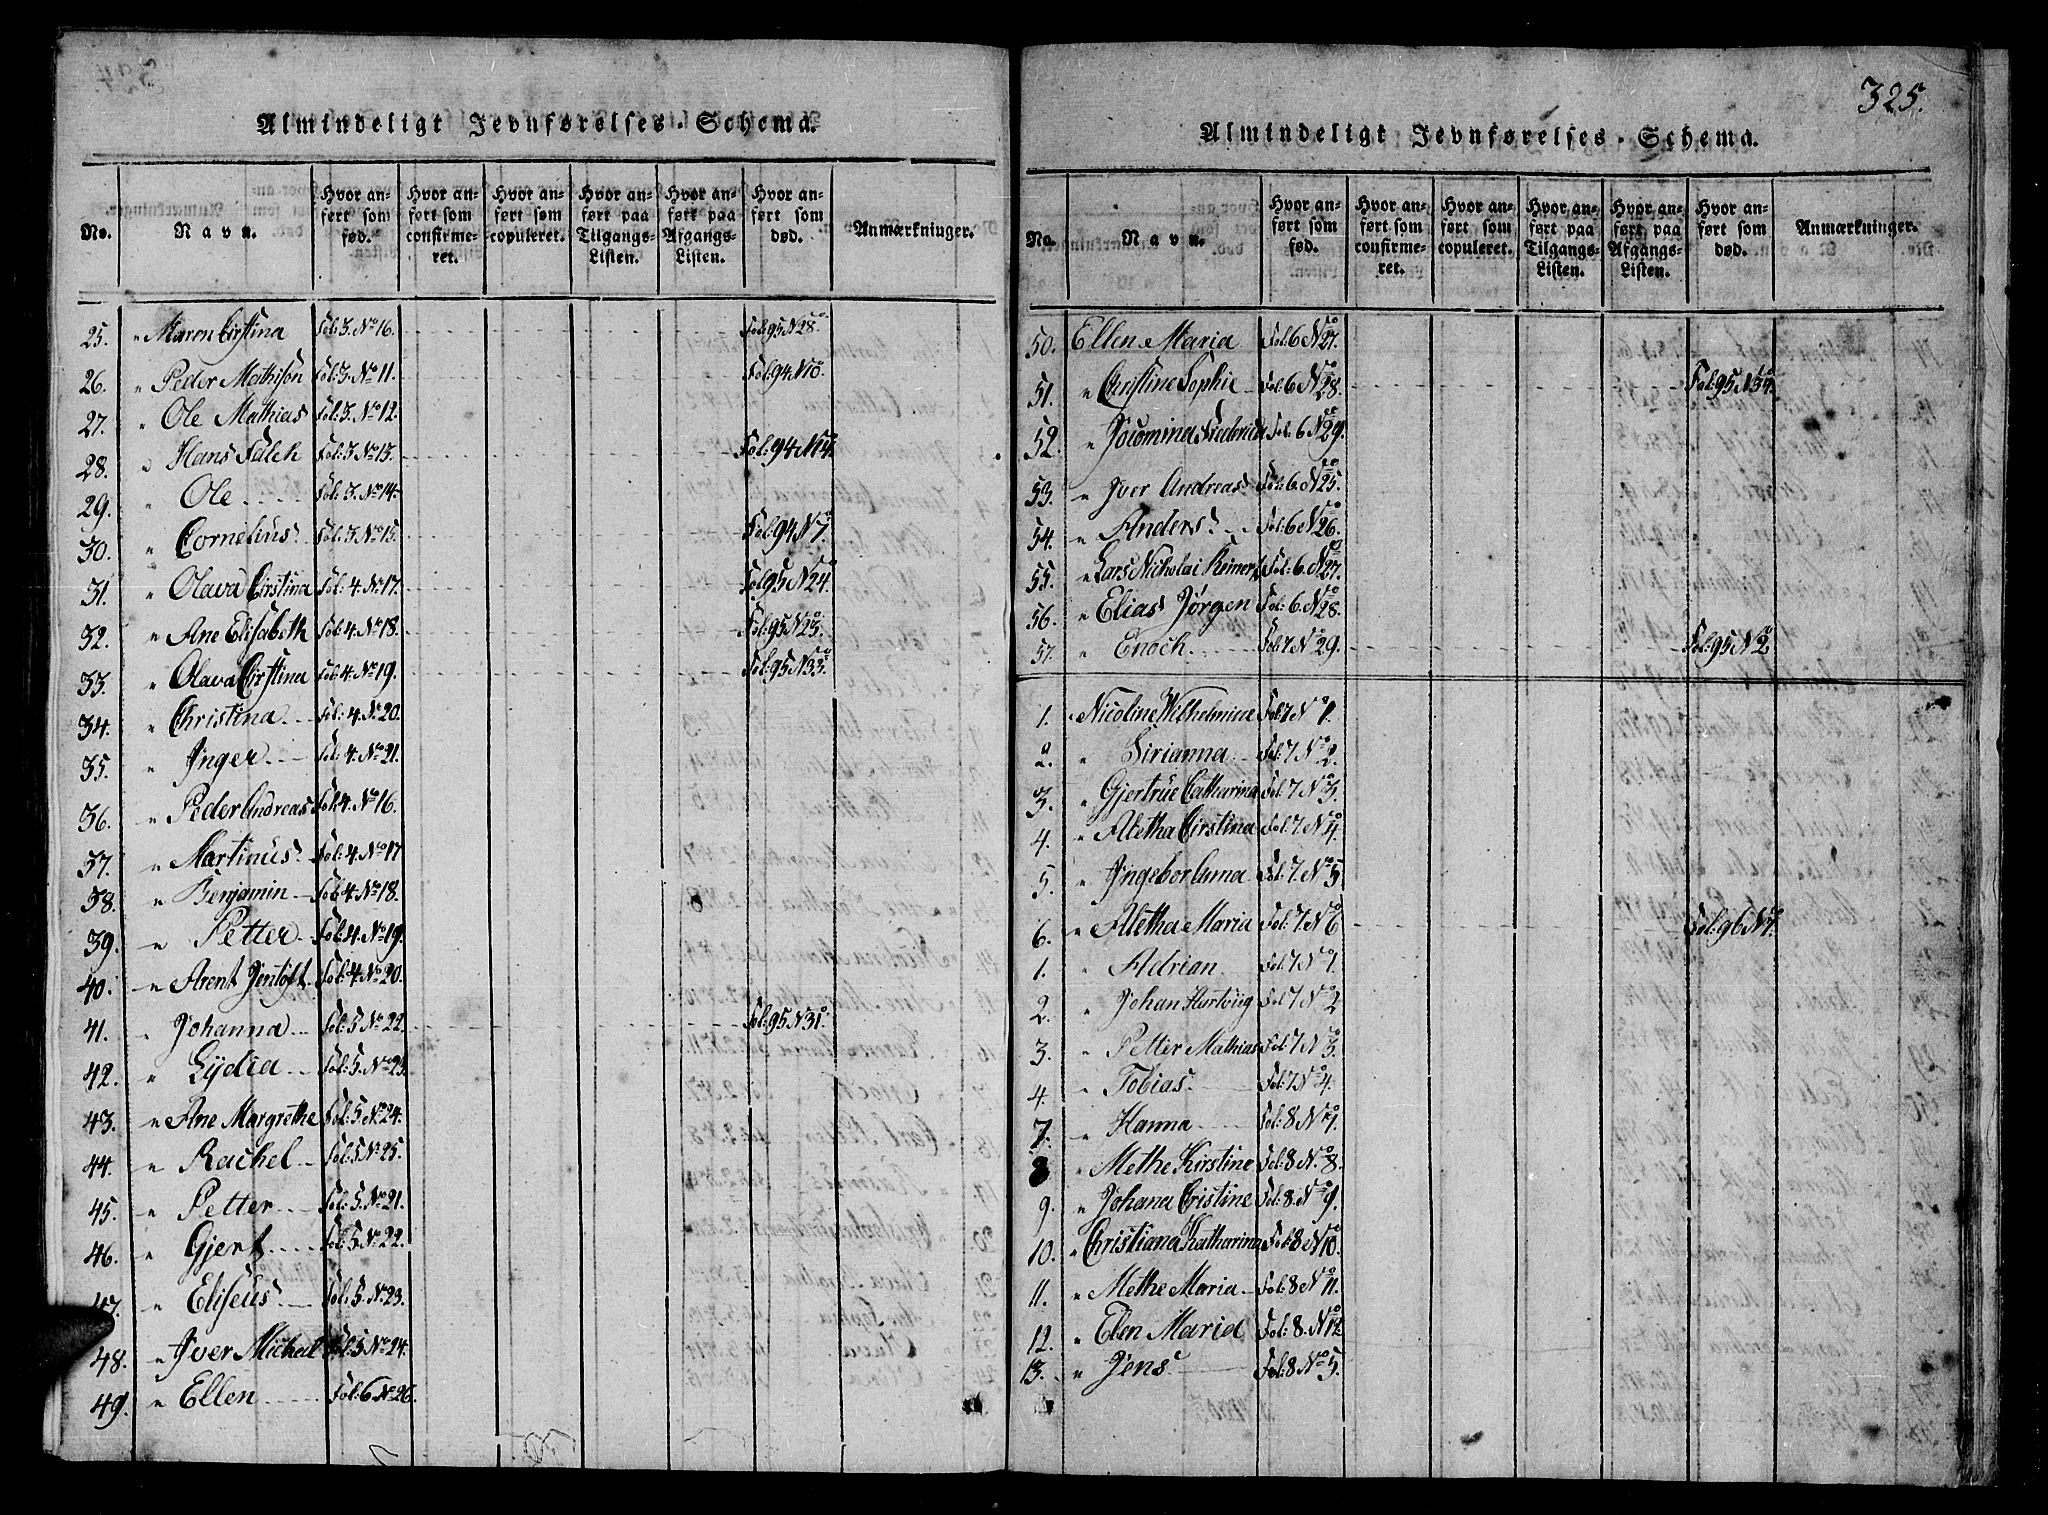 Almindeligt Jevnførelses-Schema.
No. Navn. Hvor anført som fød. Hvor anført som confirmeret. Hvor anført som copuleret. Hvor anført paa Tilgangs-Listen. Hvor anført paa Afgangs-Listen. Hvor anført som død. Anmærkninger.
25. " Maren Cirstina Fol: 3. No 16. Fol: 95 No 28.
26. " Peder Mathison Fol: 3. No 11. Fol: 94.
27. " Ole Mathias Fol: 3. No 12.
28. " Hans Falch Fol: 3 No 13. Fol: 94 No 14.
29. " Ole Fol: 3. No 14.
30. " Cornelius Fol: 3. No 15. Fol: 94 No 7.
31. " Olava Cirstina Fol: 4. No 17. Fol: 95 No 24.
32. " Ane Elisabeth Fol: 4. No 18. Fol: 95 No 23.
33. " Olava Cirstina Fol: 4. No 19. Fol: 95 No 33.
34. " Christina Fol: 4. No 20.
35. " Inger Fol: 4. No 21.
36. " Peder Andreas Fol: 4. No 16.
37. " Martinus Fol: 4. No 17
38. " Benjamin Fol: 4. No 18.
39. " Petter Fol: 4. No 19.
40. " Arent Jentoft Fol: 4 No 20.
41. " Johanna Fol: 5 No 22. Fol: 95 No 31.
42. " Lydia Fol: 5. No 23.
43. " Ane Margrethe Fol: 5. No 24.
44. " Rachel Fol: 5 No 25.
45. " Petter Fol: 5. No 21.
46. " Gjert Fol: 5 No 22.
47. " Eliseus Fol: 5. No 23.
48. " Iver Michal Fol: 5 No 24.
49. " Ellen Fol: 6 No 26.
325.
Almindeligt Jevnførelses-Schema.
No. Navn. Hvor anført som fød. Hvor anført som confirmeret. Hvor anført som copuleret. Hvor anført paa Tilgangs-Listen. Hvor anført paa Afgangs-Listen. Hvor anført som død. Anmærkninger.
50. Ellen Maria Fol: 6 No 27.
51. " Christine Sophie Fol: 6 No 28. Fol: 95 No 34.
52. " Jacomina Frederica Fol: 6 No 29.
53. " Iver Andreas Fol: 6. No 25.
54. " Anders Fol: 6 No 26.
55. " Lars Nicholai Reinert Fol: 6. No 27.
56. " Elias Jørgen Fol: 6. No 28.
57. " Enoch Fol: 7 No 29. Fol: 95 No 2
1. " Nicoline Wilhelmine Fol: 7 No 1.
2. " Sirianna Fol: 7. No 2.
3. " Gjertrue Catharina Fol: 7 No 3.
4. " Aletha Cirstina Fol: 7. No 4.
5. " Ingebor Anna Fol: 7. No 5
6. " Aletha Maria Fol: 7. No 6 Fol: 96 No 7.
1. " Adrian Fol: 7 No 1.
2. " Johan Hartvig Fol: 7 No 2
3. " Petter Mathias Fol: 7 No 3.
4. " Tobias Fol: 7 No 4.
7. " Hanna Fol: 8 No 7.
8 " Methe Kirstine Fol: 8 No 8.
9. " Johana Cristine Fol: 8. No 9.
10. " Christiana Katharina Fol: 8 No 10.
11. " Methe Maria Fol: 8 No 11.
12. " Elen Maria Fol: 8. No 12
13. " Jens Fol: 8 No 5.